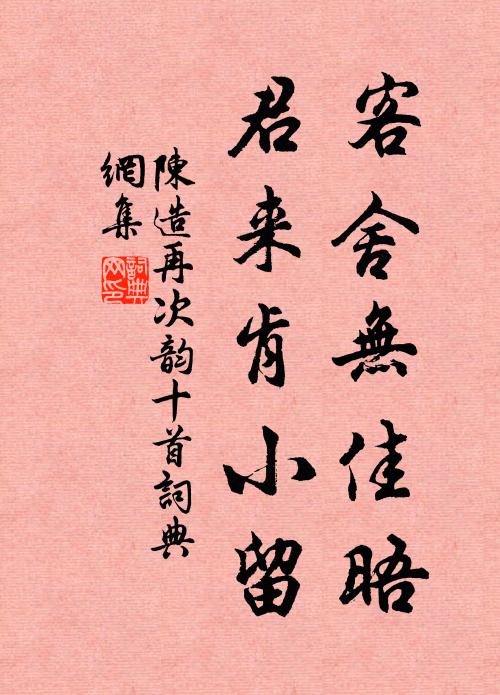 客舍無佳晤
君来肯小留
陳造再次韵十首詞典
網集
詞典
网印